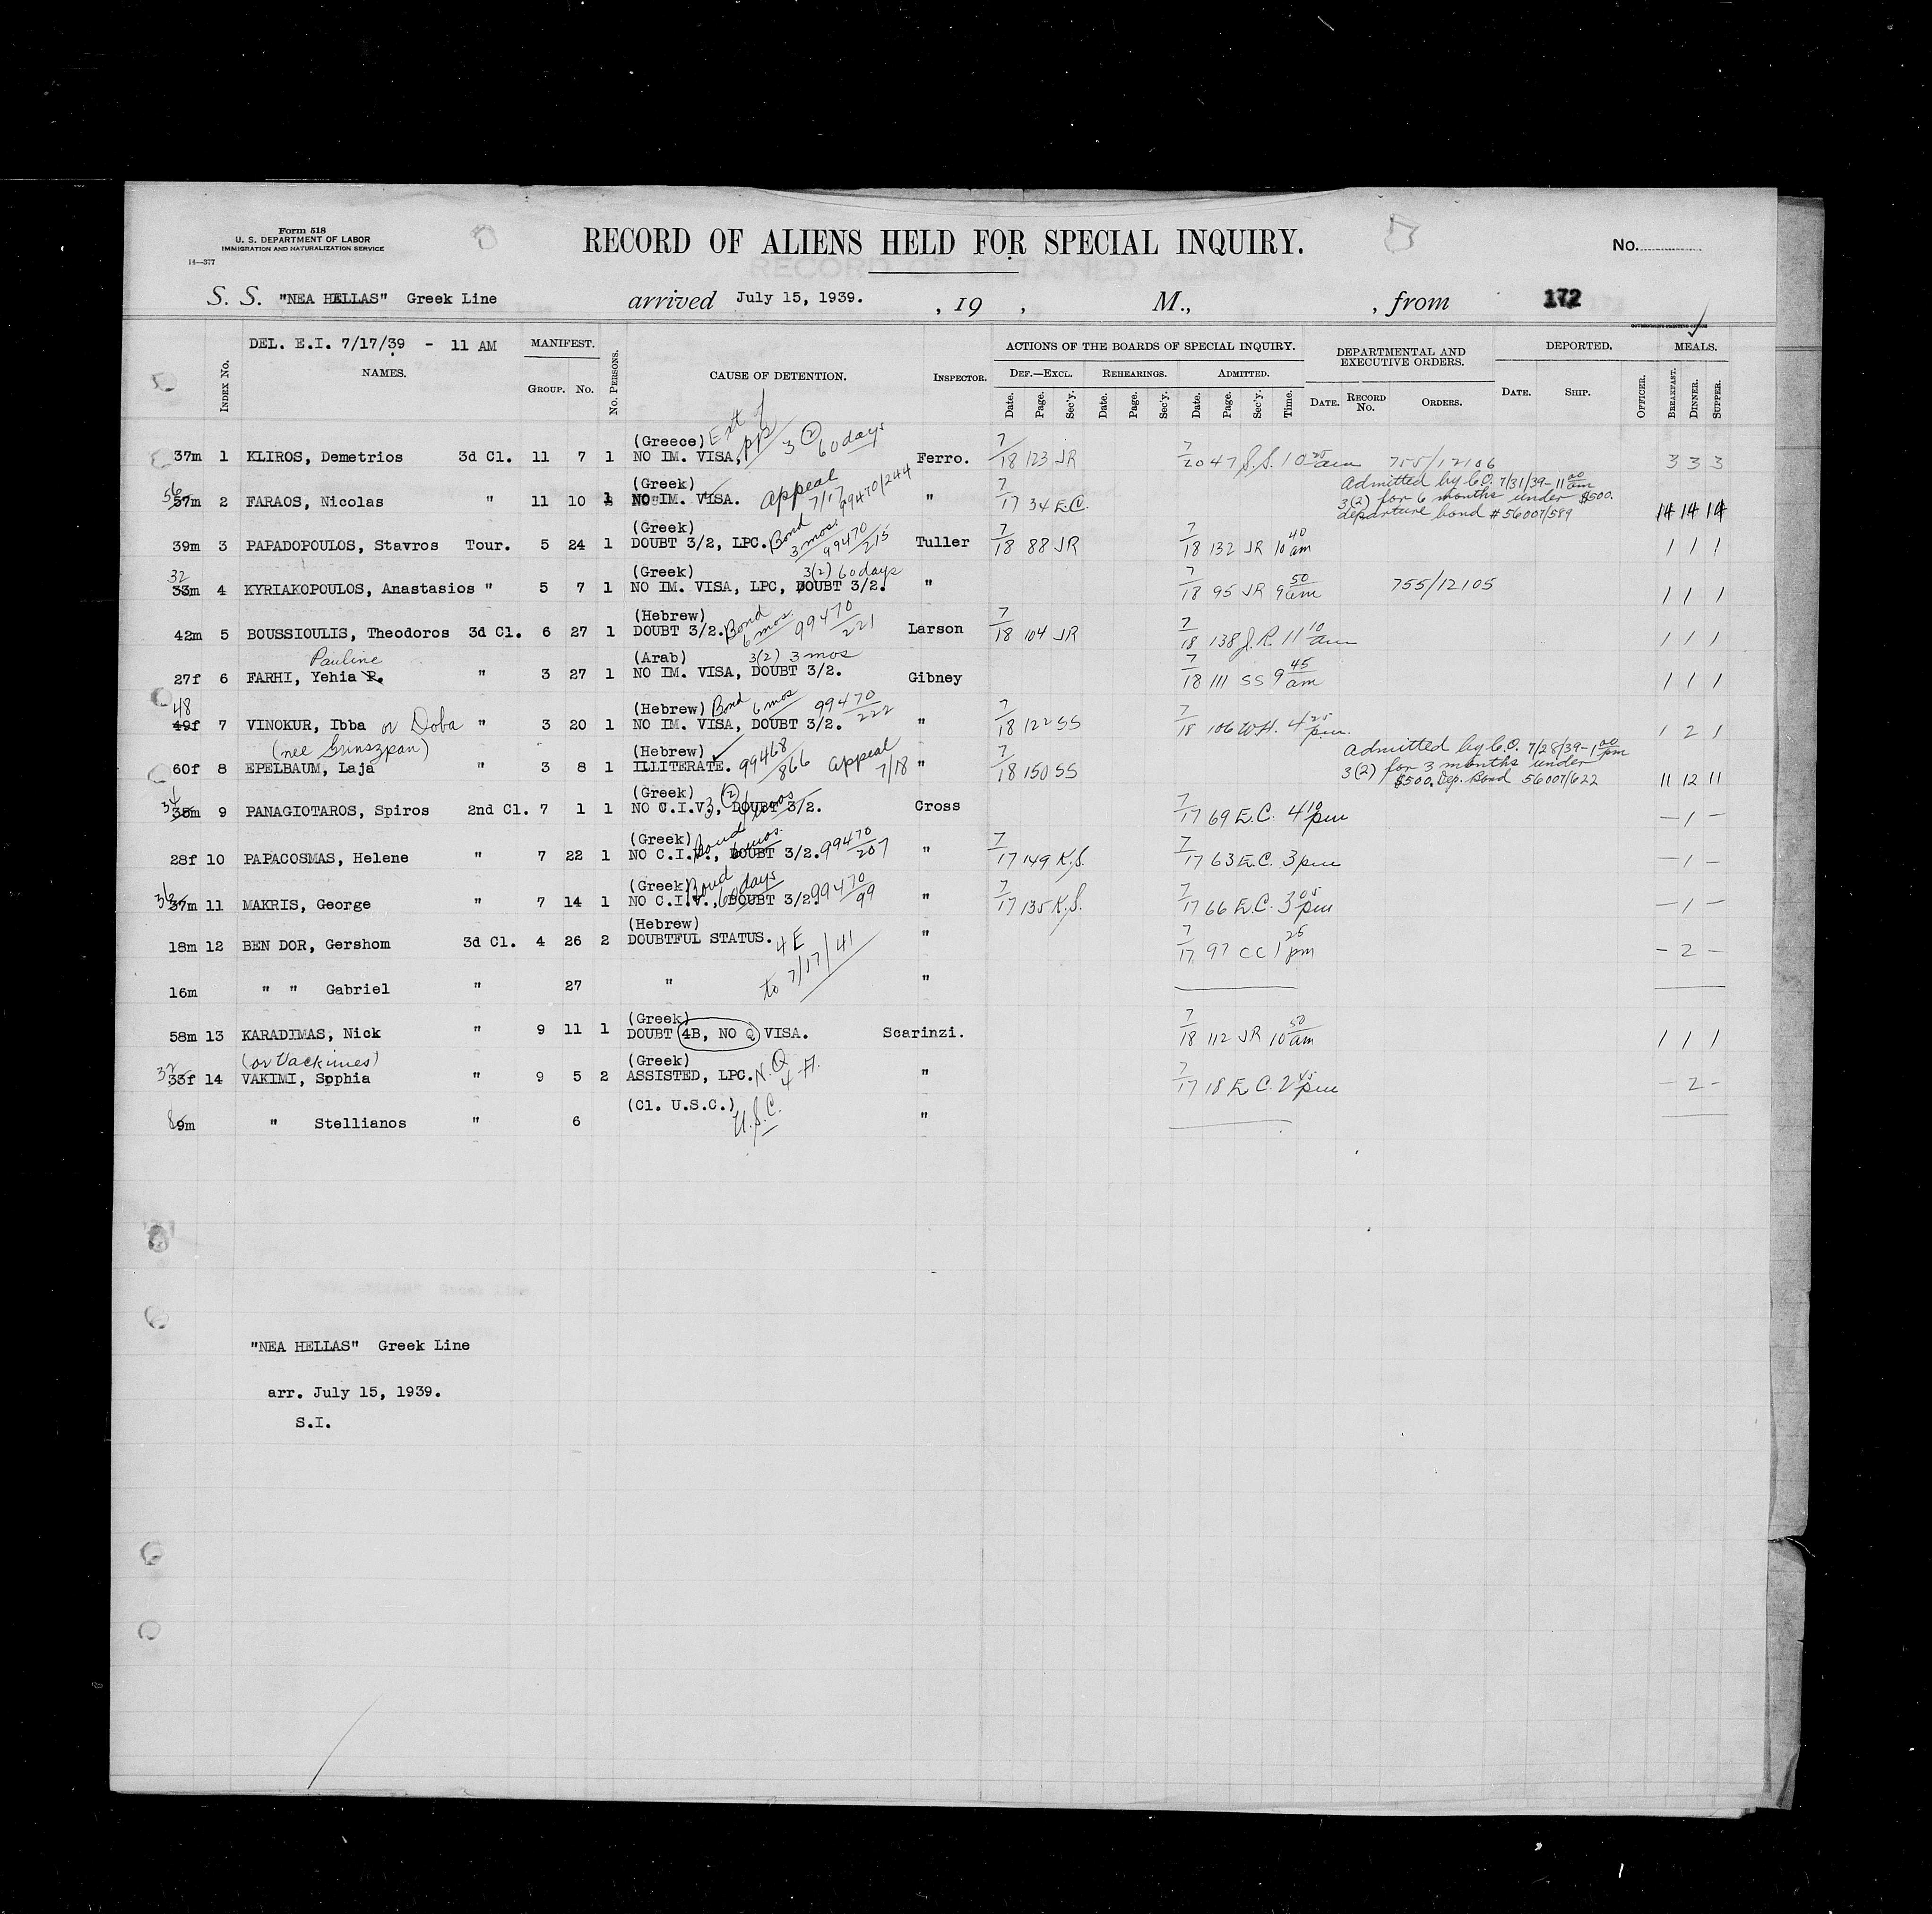 Form 518
U. S. DEPARTMENT OF LABOR
IMMIGRATION AND NATURALIZATION SERVICE
14—377
RECORD OF ALIENS HELD FOR SPECIAL INQUIRY.
No.
S. S. "NEA HELLAS" Greek Line arrived July 15, 1939. , 19 , M., , from 172
DEL. E.I. 7/17/39 - 11 AM
INDEX No. NAMES. MANIFEST. GROUP. No. No. PERSONS. CAUSE OF DETENTION. INSPECTOR. ACTIONS OF THE BOARDS OF SPECIAL INQUIRY. DEPARTMENTAL AND EXECUTIVE ORDERS. DEPORTED. MEALS.
DEF.—EXCL. REHEARINGS. ADMITTED.
Date. Page. Sec'y. Date. Page. Sec'y. Date. Page. Sec'y. Time. DATE. RECORD No. ORDERS. DATE. SHIP. OFFICER. BREAKFAST. DINNER. SUPPER.
(Greece) Ext of pps 3 (2) 60 days
37m 1 KLIROS, Demetrios 3d Cl. 11 7 1 NO IM. VISA, Ferro. 7/18 123 JR 7/20 47 S.S. 10 25 am 755/12106 3 3 3
(Greek) Appeal 7/17 99470/244
56 57m 2 FARAOS, Nicolas " 11 10 1 NO IM. VISA. " 7/17 34 E.C. Admitted by C.O. 7/31/39-11 00 am
3(2) for 6 months under $500.
departure bond # 56007/589 14 14 14
(Greek) Bond 3 mos. 99470/215
39m 3 PAPADOPOULOS, Stavros Tour. 5 24 1 DOUBT 3/2, LPC. Tuller 7/18 88 JR 7/18 132 JR 10 40 am 1 1 1
(Greek) 3(2) 60 days
32 33m 4 KYRIAKOPOULOS, Anastasios " 5 7 1 NO IM. VISA, LPC, DOUBT 3/2. " 7/18 95 JR 9 50 am 755/12105 1 1 1
(Hebrew) Bond 6 mos. 99470/221
42m 5 BOUSSIOULIS, Theodoros 3d Cl. 6 27 1 DOUBT 3/2. Larson 7/18 104 JR 7/18 138 J.R. 11 10 am 1 1 1
Pauline (Arab) 3(2) 3 mos
27f 6 FARHI, Yehia P. " 3 27 1 NO IM. VISA, DOUBT 3/2. Gibney 7/18 111 SS 9 45 am 1 1 1
(Hebrew) Bond 6 mos 99470/222
48 49f 7 VINOKUR, Ibba or Doba " 3 20 1 NO IM. VISA, DOUBT 3/2. " 7/18 122 SS 7/18 106 W.H. 4 25 pm. 1 2 1
(nee Grinszpan) (Hebrew) 99468/866 Appeal 7/18
60f 8 EPELBAUM, Laja " 3 8 1 ILLITERATE. " 7/18 150 SS Admitted by C.O. 7/28/39-1 00 pm
3(2) for 3 months under
$500. Dep. Bond 56007/622 11 12 11
(Greek) 3 (2) 6 mos
34 35m 9 PANAGIOTAROS, Spiros 2nd Cl. 7 1 1 NO C.I.V., DOUBT 3/2. Cross 7/17 69 E.C. 4 10 pm — 1 —
(Greek) Bond 6 mos. 99470/207
28f 10 PAPACOSMAS, Helene " 7 22 1 NO C.I.V., DOUBT 3/2. " 7/17 149 K.S. 7/17 63 E.C. 3 pm — 1 —
(Greek) Bond 60 days 99470/99
36 37m 11 MAKRIS, George " 7 14 1 NO C.I.V., DOUBT 3/2. " 7/17 135 K.S. 7/17 66 E.C. 3 05 pm — 1 —
(Hebrew)
18m 12 BEN DOR, Gershom 3d Cl. 4 26 2 DOUBTFUL STATUS. 4 E to 7/17/41 " 7/17 97 CC 1 25 pm — 2 —
16m " " Gabriel " 27 " "
(Greek)
58m 13 KARADIMAS, Nick " 9 11 1 DOUBT 4B, NO Q VISA. Scarinzi. 7/18 112 JR 10 50 am 1 1 1
(or Vackimes) (Greek)
32 33f 14 VAKIMI, Sophia " 9 5 2 ASSISTED, LPC. N.Q. 4-A. " 7/17 18 E.C. 2 45 pm — 2 —
(Cl. U.S.C.)
8 9m " Stellianos " 6 U.S.C. "
"NEA HELLAS" Greek Line
arr. July 15, 1939.
S.I.